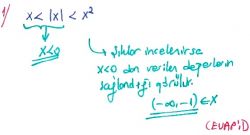 1/ x < |x| < x²
x<0
şıklar incelenirse
x<0 dan verilen değerlerin
sağlandığı görülür.
(-∞, -1) ∈ x
(EVAPİD)